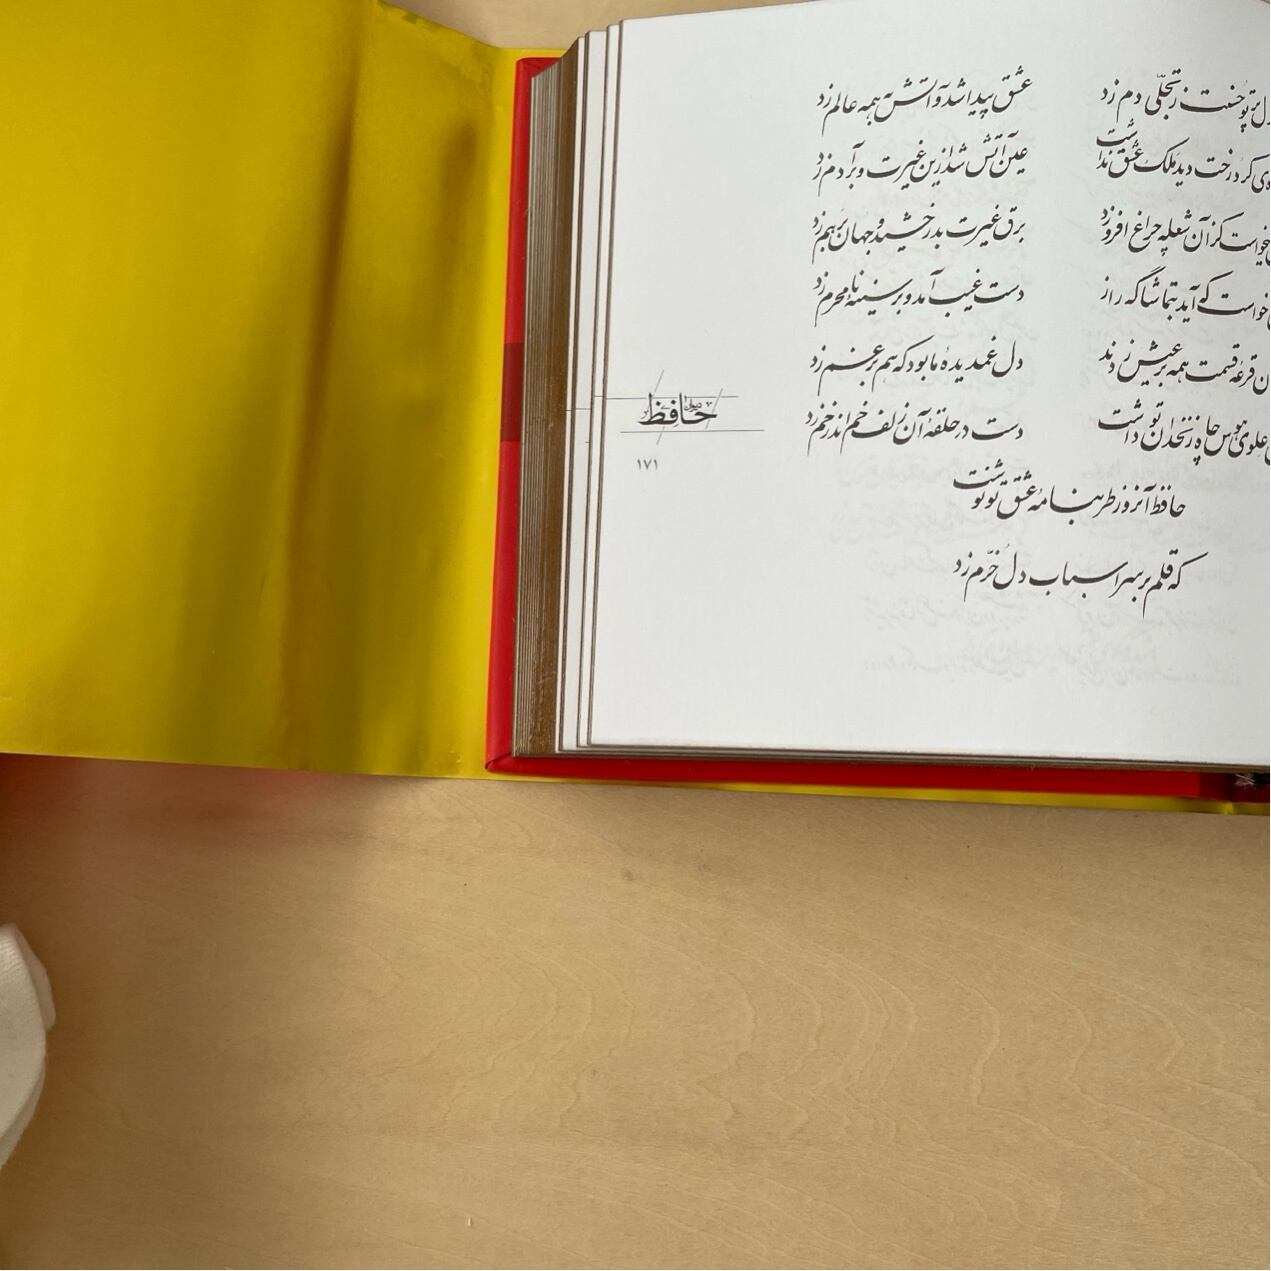 پرتو حسنت ز تجلّی دم زد عشق پیدا شد و آتش به همه عالم زد
کرد رخت دید ملک عشق نداشت عین آتش شد ازین غیرت و بر آدم زد
خواست کز آن شعله چراغ افروزد برق غیرت بدرخشید و جهان برهم زد
خواست که آید بتماشاگه راز دست غیب آمد و بر سینهٔ نامحرم زد
قرعهٔ قسمت همه بر عیش زدند دل غمدیدهٔ ما بود که هم بر غم زد
علوی هوس چاه زنخدان تو داشت دست در حلقهٔ آن زلف خم اندر خم زد
حافظ آنروز طربنامهٔ عشق تو نوشت
که قلم بر سر اسباب دل خرّم زد
دیوان حافظ
۱۷۱